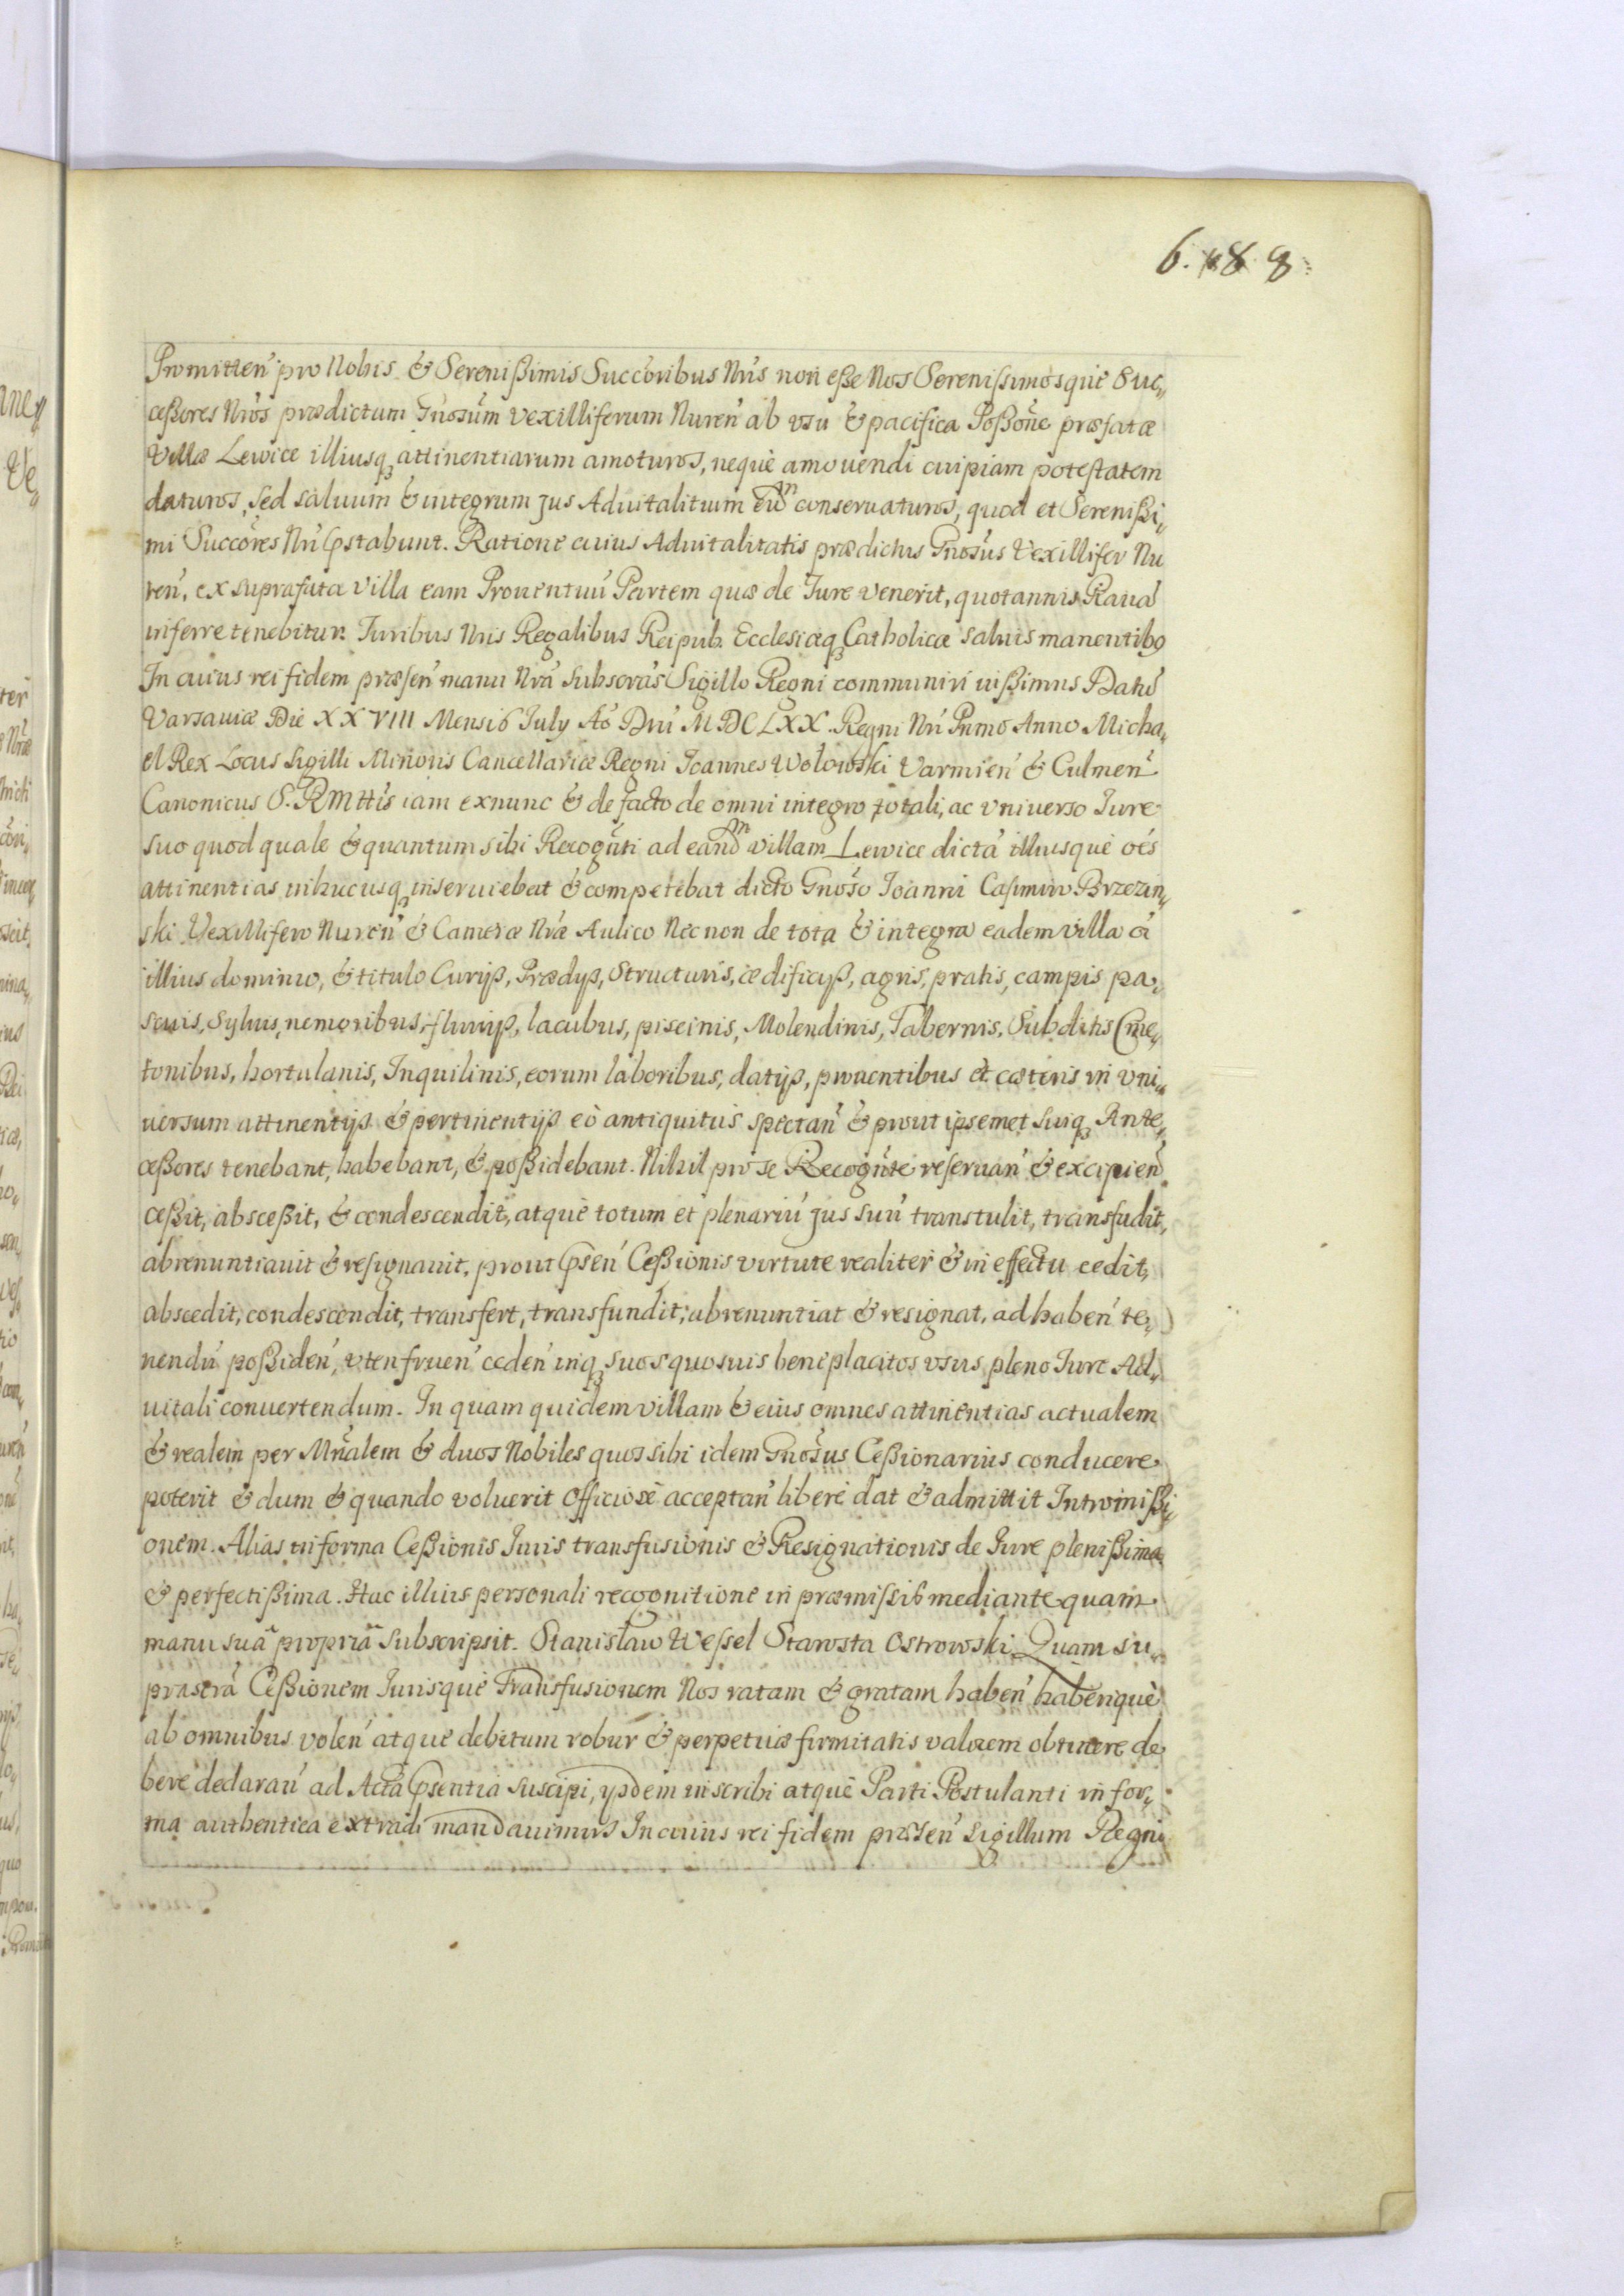 6. 8 8
Promitten̄ pro Nobis & Serenißimis Succ̄oribus Nr̄is non eße Nos Serenissimosque Suc„
ceßores Nr̄os prædictum Gn̄osum Vexilliferum Nuren̄ ab vsu & pacifica Poßōne præfatæ
Villæ Lewice illiusq₃ attinentiarum amoturos, nequè amouendi cuipiam potestatem
daturos, sed saluum & integrum jus Aduitalituum eidm̄ conseruaturos, quod et Serenißi„
mi Succōres Nr̄i p̄stabunt. Ratione cuius Aduitalitatis prædictus Gn̄osus Vexillifer Nu
ren̄, ex suprafata villa eam Prouentuū Partem quæ de Iure venerit, quotannis Rauā
inferre tenebitur. Iuribus Nr̄is Regalibus Reipub. Ecclesiæq₃ Catholicæ saluis manentib9
In cuius rei fidem præsen̄ manu Nr̄a subscrās Sigillo Regni communiri iußimus Datū
Varsauiæ Die XXVIII Mensis July Aō Dn̄i MDCLXX. Regni Nr̄i Primo Anno Micha„
el Rex Locus Sigilli Minoris Cancellariæ Regni Joannes Wolowski Varmien̄ & Culmen̄
Canonicus S. R Mttīs iam exnunc & de facto de omni integro totali, ac vniuerso Iure
suo quod quale & quantum sibi Recogn̄ti ad eandm̄ villam Lewice dictā illiusquè oēs
attinentias inhucusq₃ inseruiebat & competebat dicto Gn̄oso Ioanni Casimiro Brzezin„
ski Vexillifero Nuren̄ & Cameræ Nr̄æ Aulico Necnon de tota & integra eadem villa oī
illius dominio, & titulo Curijs, Prædijs, Structuris, ædificijs, agris, pratis, campis pa„
scuis, Syluis, nemoribus, fluuijs, lacubus, piscinis, Molendinis, Tabernis, Subditis Cme„
tonibus, hortulanis, Inquilinis, eorum laboribus, datijs, prouentibus et cæteris in vni„
uersum attinentijs & pertinentijs eò antiquitus spectan̄ & prout ipsemet suiq₃ Ante„
ceßores tenebant, habebant, & poßidebant. Nihil pro se Recogn̄te reseruan̄ & excipien̄
ceßit, absceßit, & condescendit, atquè totum et plenariū jus suū transtulit, transfudit,
abrenuntiauit & resignauit, prout p̄sen̄ Ceßionis virtute realiter & in effectu cedit,
abscedit, condescendit, transfert, transfundit, abrenuntiat & resignat, ad haben̄ te„
nendū poßiden̄, vten fruen̄ ceden̄ inq₃ suos quosuis beneplacitos vsus pleno Iure Ad„
uitali conuertendum. In quam quidem villam & eius omnes attinentias actualem
& realem per Mn̄alem & duos Nobiles quos sibi idem Gn̄osus Ceßionarius conducere
poterit & dum & quando voluerit Officiosè acceptan̄ liberè dat & admittit Intromißi„
onem. Alias in forma Ceßionis Iuris transfusionis & Resignationis de Iure plenißima
& perfectißima. Hac illius personali recognitione in præmissis mediante quam
manu suâ propriâ subscripsit. Stanisław Wessel Starosta Ostrowski Quam su„
prascrā Ceßionem Iurisquè Transfusionem Nos ratam & gratam haben̄ haberiquè
ab omnibus volen̄ atque debitum robur & perpetuæ firmitatis valorem obtinere de
bere declaran̄ ad Acta p̄sentia suscipi, ijsdem inscribi atquè Parti Postulanti in for„
ma authentica extradi mandauimus In cuius rei fidem præsen̄ sigillum Regni